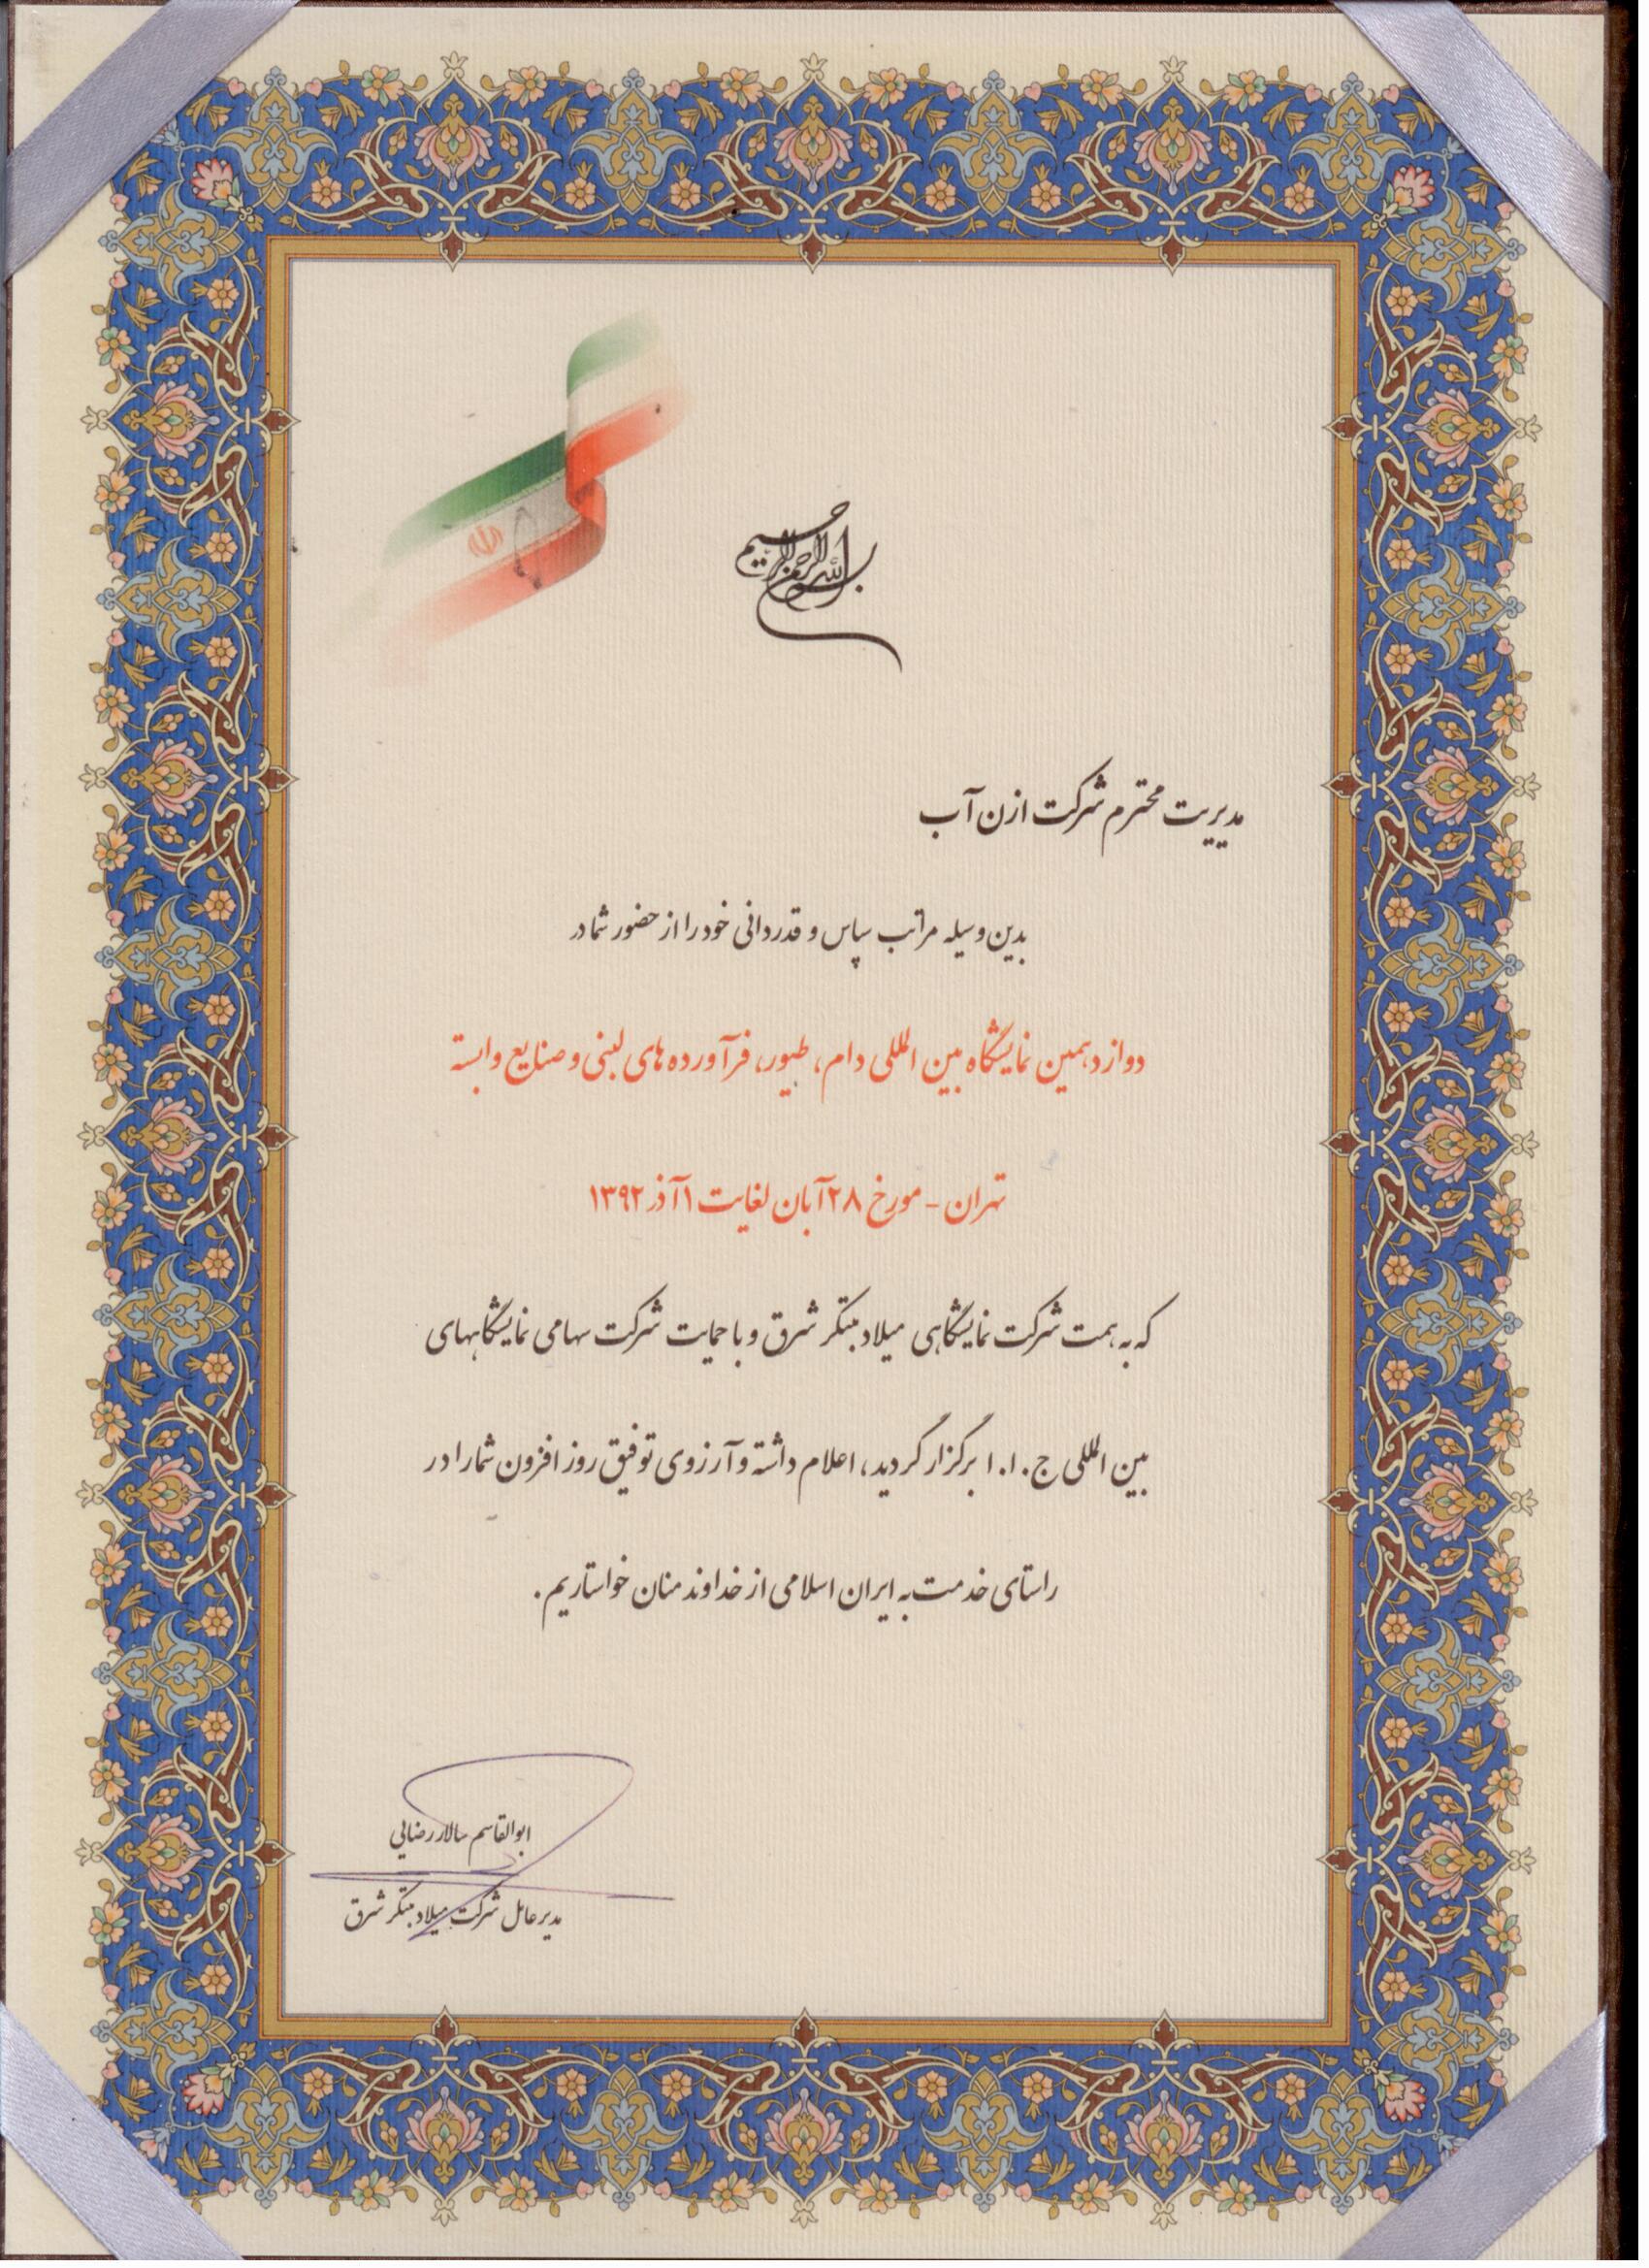 بسم الله الرحمن الرحیم
مدیریت محترم شرکت ازن آب
بدین وسیله مراتب سپاس و قدردانی خود را از حضور شما در
دوازدهمین نمایشگاه بین المللی دام، طیور، فرآورده های لبنی و صنایع وابسته
تهران - مورخ ۲۸ آبان لغایت ۱ آذر ۱۳۹۲
که به همت شرکت نمایشگاهی میلاد مبتکر شرق و با حمایت شرکت سهامی نمایشگاههای
بین المللی ج.ا.ا برگزار گردید، اعلام داشته و آرزوی توفیق روز افزون شما را در
راستای خدمت به ایران اسلامی از خداوند منان خواستاریم.
ابوالقاسم سالار رضایی
مدیر عامل شرکت میلاد مبتکر شرق